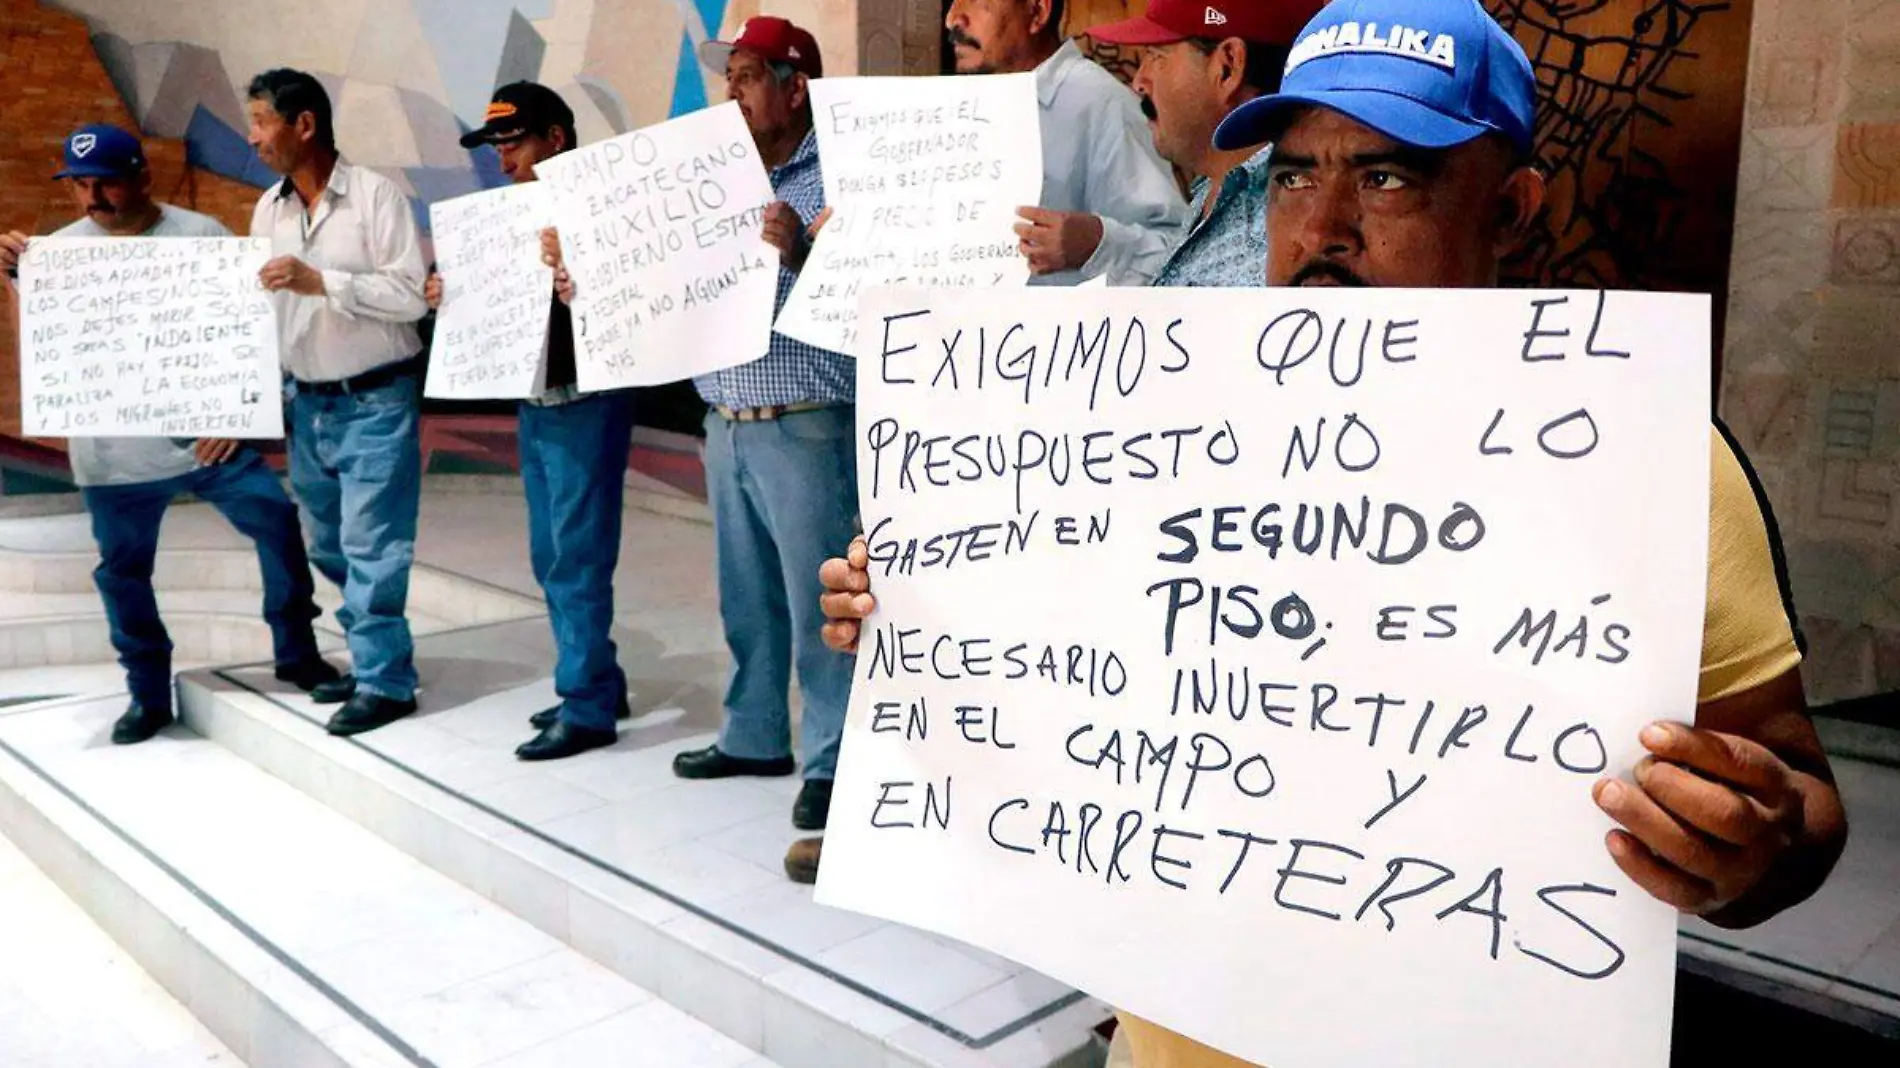 GOBERNADOR... POR EL
DE DIOS APIADATE DE
LOS CAMPESINOS, NO
NOS DEJES MORIR SOLOS
NO SEAS "INDOLENTE"
SI NO HAY FRIJOL SE
PARALIZA LA ECONOMIA
Y LOS MIGRANTES NO LE
INVIERTEN
LOS CAMPESINOS
FUERON
CAMPO
ZACATECANO
DE AUXILIO
GOBIERNO ESTATAL
Y FEDERAL
PORQUE YA NO AGUANTA
MAS
EXIGIMOS QUE EL
GOBERNADOR
PONGA PESOS
al PRECIO DE
GARANTIA, LOS GOBIERNOS
DE Y
ONALIKA
EXIGIMOS QUE EL
PRESUPUESTO NO LO
GASTEN EN SEGUNDO
PISO; ES MÁS
NECESARIO INVERTIRLO
EN EL CAMPO Y
EN CARRETERAS